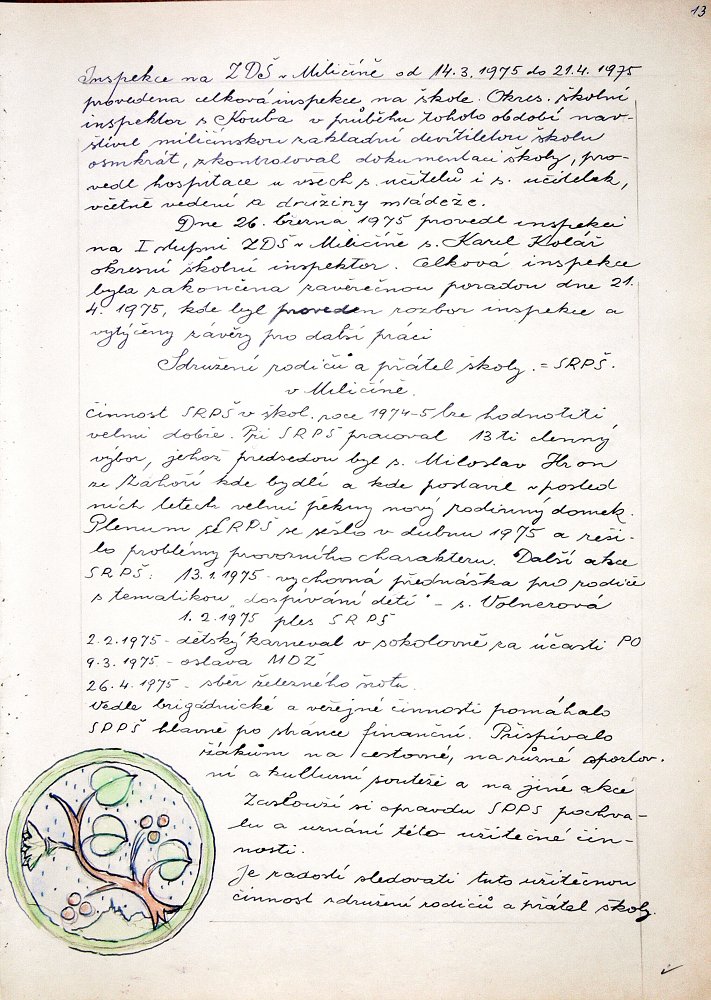 13
Inspekce na ZDŠ v Miličíně od 14.3.1975 do 21.4.1975
provedena celková inspekce na škole. Okres. školní
inspektor s Kouba v průběhu tohoto období nav-
štívil miličínskou základní devítiletou školu
osmkrát, zkontroloval dokumentaci školy, pro-
vedl hospitace u všech s. učitelů i s. učitelek,
včetně vedení a družiny mládeže.
Dne 26. března 1975 provedl inspekci
na I stupni ZDŠ v Miličíně s. Karel Kolář
okresní školní inspektor. Celková inspekce
byla zakončena závěrečnou poradou dne 21.
4. 1975, kde byl proveden rozbor inspekce a
vytýčeny závěry pro další práci
Sdružení rodičů a přátel školy. = SRPŠ.
v Miličíně.
činnost SRPŠ v škol. roce 1974-5 lze hodnotiti
velmi dobře. Při SRPŠ pracoval 13ti členný
výbor, jehož předsedou byl s. Miloslav Hron
ze Záhoří kde bydlí a kde postavil v posled
ních letech velmi pěkný nový rodinný domek.
Plenum SRPŠ se sešlo v dubnu 1975 a řeši-
lo problémy provozního charakteru. Další akce
SRPŠ: 13.1.1975 - výchovná přednáška pro rodiče
s tematikou "dospívání dětí" - s. Volnerová
1.2.1975 ples SRPŠ
2.2.1975 - dětský karneval v sokolovně za účasti PO
9.3.1975 - oslava MDŽ
26.4.1975 - sběr železného šrotu.
Vedle brigádnické a veřejné činnosti pomáhalo
SRPŠ hlavně po stránce finanční. Přispívalo
žákům na cestovné, na různé sportov.
ní a kulturní soutěže a na jiné akce
Zaslouží si opravdu SRPŠ pochva-
lu a uznání této užitečné čin-
nosti.
Je radostí sledovati tuto užitečnou
činnost sdružení rodičů a přátel školy.